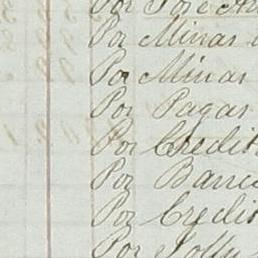 Por Jose
Por Minas
Por Minas
Por Pagar
Por Credit
Por Banco
Por Credit
Por Solly